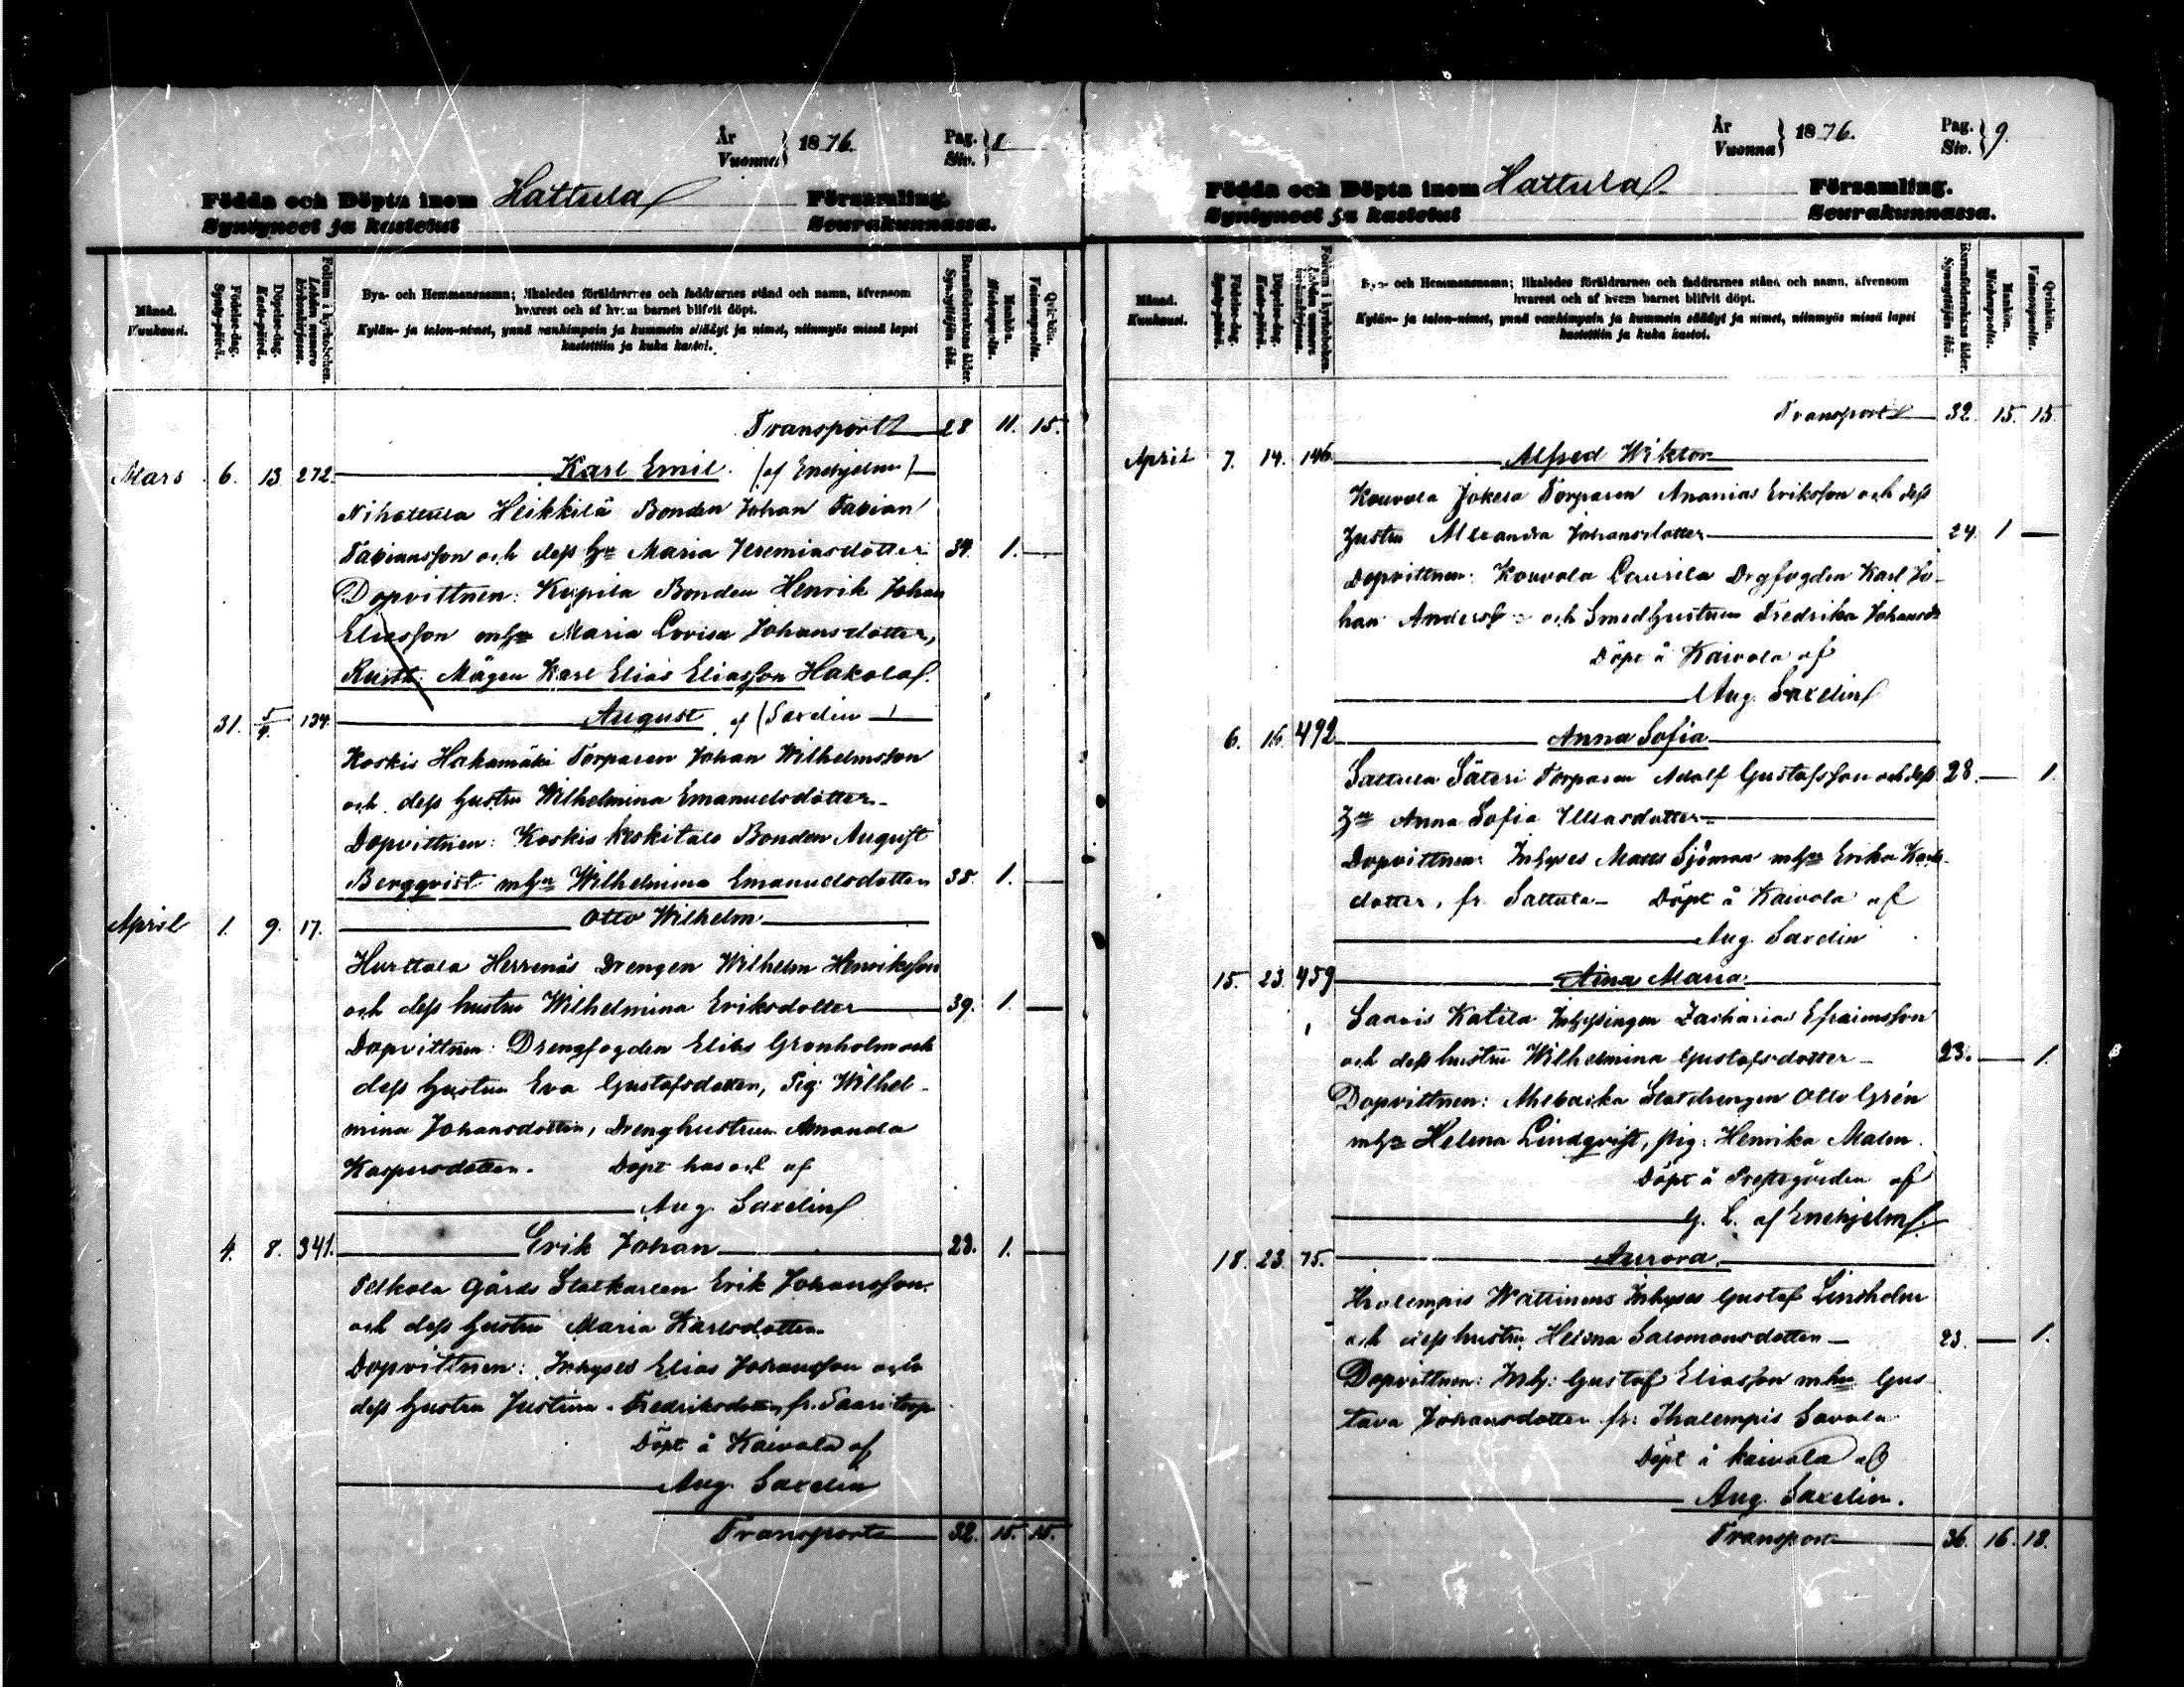 År
Vuonna } 1876. Pag. Siv. } 8
Födda och Döpta inom Hattula Församling.
Syntyneet ja kastetut Seurakunnassa.
Månad. Kuukausi.
Födelse-dag. Synty-päivä.
Döpelse-dag. Kaste-päivä.
Folium i kyrkoboken. Lehden numero kirkonkirjassa.
Bya- och Hemmansnamn; likaledes föräldrarnes och faddrarnes stånd och namn, äfvensom
hvarest och af hvem barnet blifvit döpt.
Kylän- ja talon-nimet, ynnä vanhimpain ja kummein säädyt ja nimet, niinmyös missä lapsi
kastettiin ja kuka kastoi.
Barnaföderskans ålder. Synnyttäjän ikä.
Mankön. Miehenpuolta.
Qvinkön. Vaimonpuolta.
Transport 28 11. 15.
Mars 6. 13 272 Karl Emil. (af Enehjelm)
Nihattula Heikkilä Bonden Johan Fabian
Fabiansson och dess h:u Maria Jeremiasdotter 34. 1. —
Dopvittnen: Kupila Bonden Henrik Johan
Eliasson m h:u Maria Lovisa Johansdotter,
Rusth: Mågen Karl Elias Eliasson Hakola.
31. 5/4. 134. August af (Saxelin)
Koskis Hakamäki Torparen Johan Wilhelmsson
och dess hustru Wilhelmina Emanuelsdotter
Dopvittnen: Koskis Keskitalo Bonden August
Bergqvist m h:u Wilhelmina Emanuelsdotter 38. 1. —
April 1. 9. 17. Otto Wilhelm
Hurttala Herrenäs Drengen Wilhelm Henriksson
och dess hustru Wilhelmina Eriksdotter 39. 1. —
Dopvittnen: Drengfogden Elias Grönholm och
dess hustru Eva Gustafsdotter, Pig: Wilhel-
mina Johansdotter, Drenghustrun Amanda
Kaspersdotter. Döpt af
Aug. Saxelin
4. 8. 341. Erik Johan 23. 1. —
Pelkola Gårds Statkarlen Erik Johansson
och dess hustru Maria Karlsdotter
Dopvittnen: Inhyses Elias Johansson och
dess hustru Justina Fredriksdotter, fr. Saari torp
Döpt å Kaivola af
Aug. Saxelin
Transport 32. 15. 15.
År
Vuonna } 1876. Pag. Siv. } 9.
Födda och Döpta inom Hattula Församling.
Syntyneet ja kastetut Seurakunnassa.
Månad. Kuukausi.
Födelse-dag. Synty-päivä.
Döpelse-dag. Kaste-päivä.
Folium i kyrkoboken. Lehden numero kirkonkirjassa.
Bya- och Hemmansnamn; likaledes föräldrarnes och faddrarnes stånd och namn, äfvensom
hvarest och af hvem barnet blifvit döpt.
Kylän- ja talon-nimet, ynnä vanhimpain ja kummein säädyt ja nimet, niinmyös missä lapsi
kastettiin ja kuka kastoi.
Barnaföderskans ålder. Synnyttäjän ikä.
Mankön. Miehenpuolta.
Qvinkön. Vaimonpuolta.
Transport 32. 15. 15
April 7. 14. 146. Alfred Wiktor
Kouvola Jokela Torparen Ananias Eriksson och dess
hustru Alexandra Johansdotter 24. 1 —
Dopvittnen: Kouvola Laurila Drgfogden Karl Jo-
han Anderss och Smedhustrun Fredrika Johansd
Döpt å Kaivola af
Aug. Saxelin
6. 16 492 Anna Sofia
Sattula Säteri Torparen Adolf Gustafsson och dess 28. — 1.
h:u Anna Sofia
Dopvittnen: Inhyses Matts Sjöman m h:u Erika Karls-
dotter, fr. Sattula — Döpt å Kaivola af
Aug. Saxelin
15. 23. 459 Aina Maria.
Saavis Katila Inhysingen Zacharias Efraimsson
och dess hustru Wilhelmina Gustafsdotter 23. — 1.
Dopvittnen: Ahlbacka Statdrengen Otto Grén
m h:u Helena Lindqvist, pig: Henrika Malm.
Döpt å Prestgården af
G. L. af Enehjelm.
18. 23. 75. Aurora.
Ihalempis Wättinens Inhyses Gustaf Lindholm
och dess hustru Helena Salomonsdotter — 23. — 1.
Dopvittnen: Inh: Gustaf Eliasson m h:u Gus-
tava Johansdotter fr: Ihalempis Savola
Döpt å Kaivola af
Aug. Saxelin.
Transport 36. 16. 18.